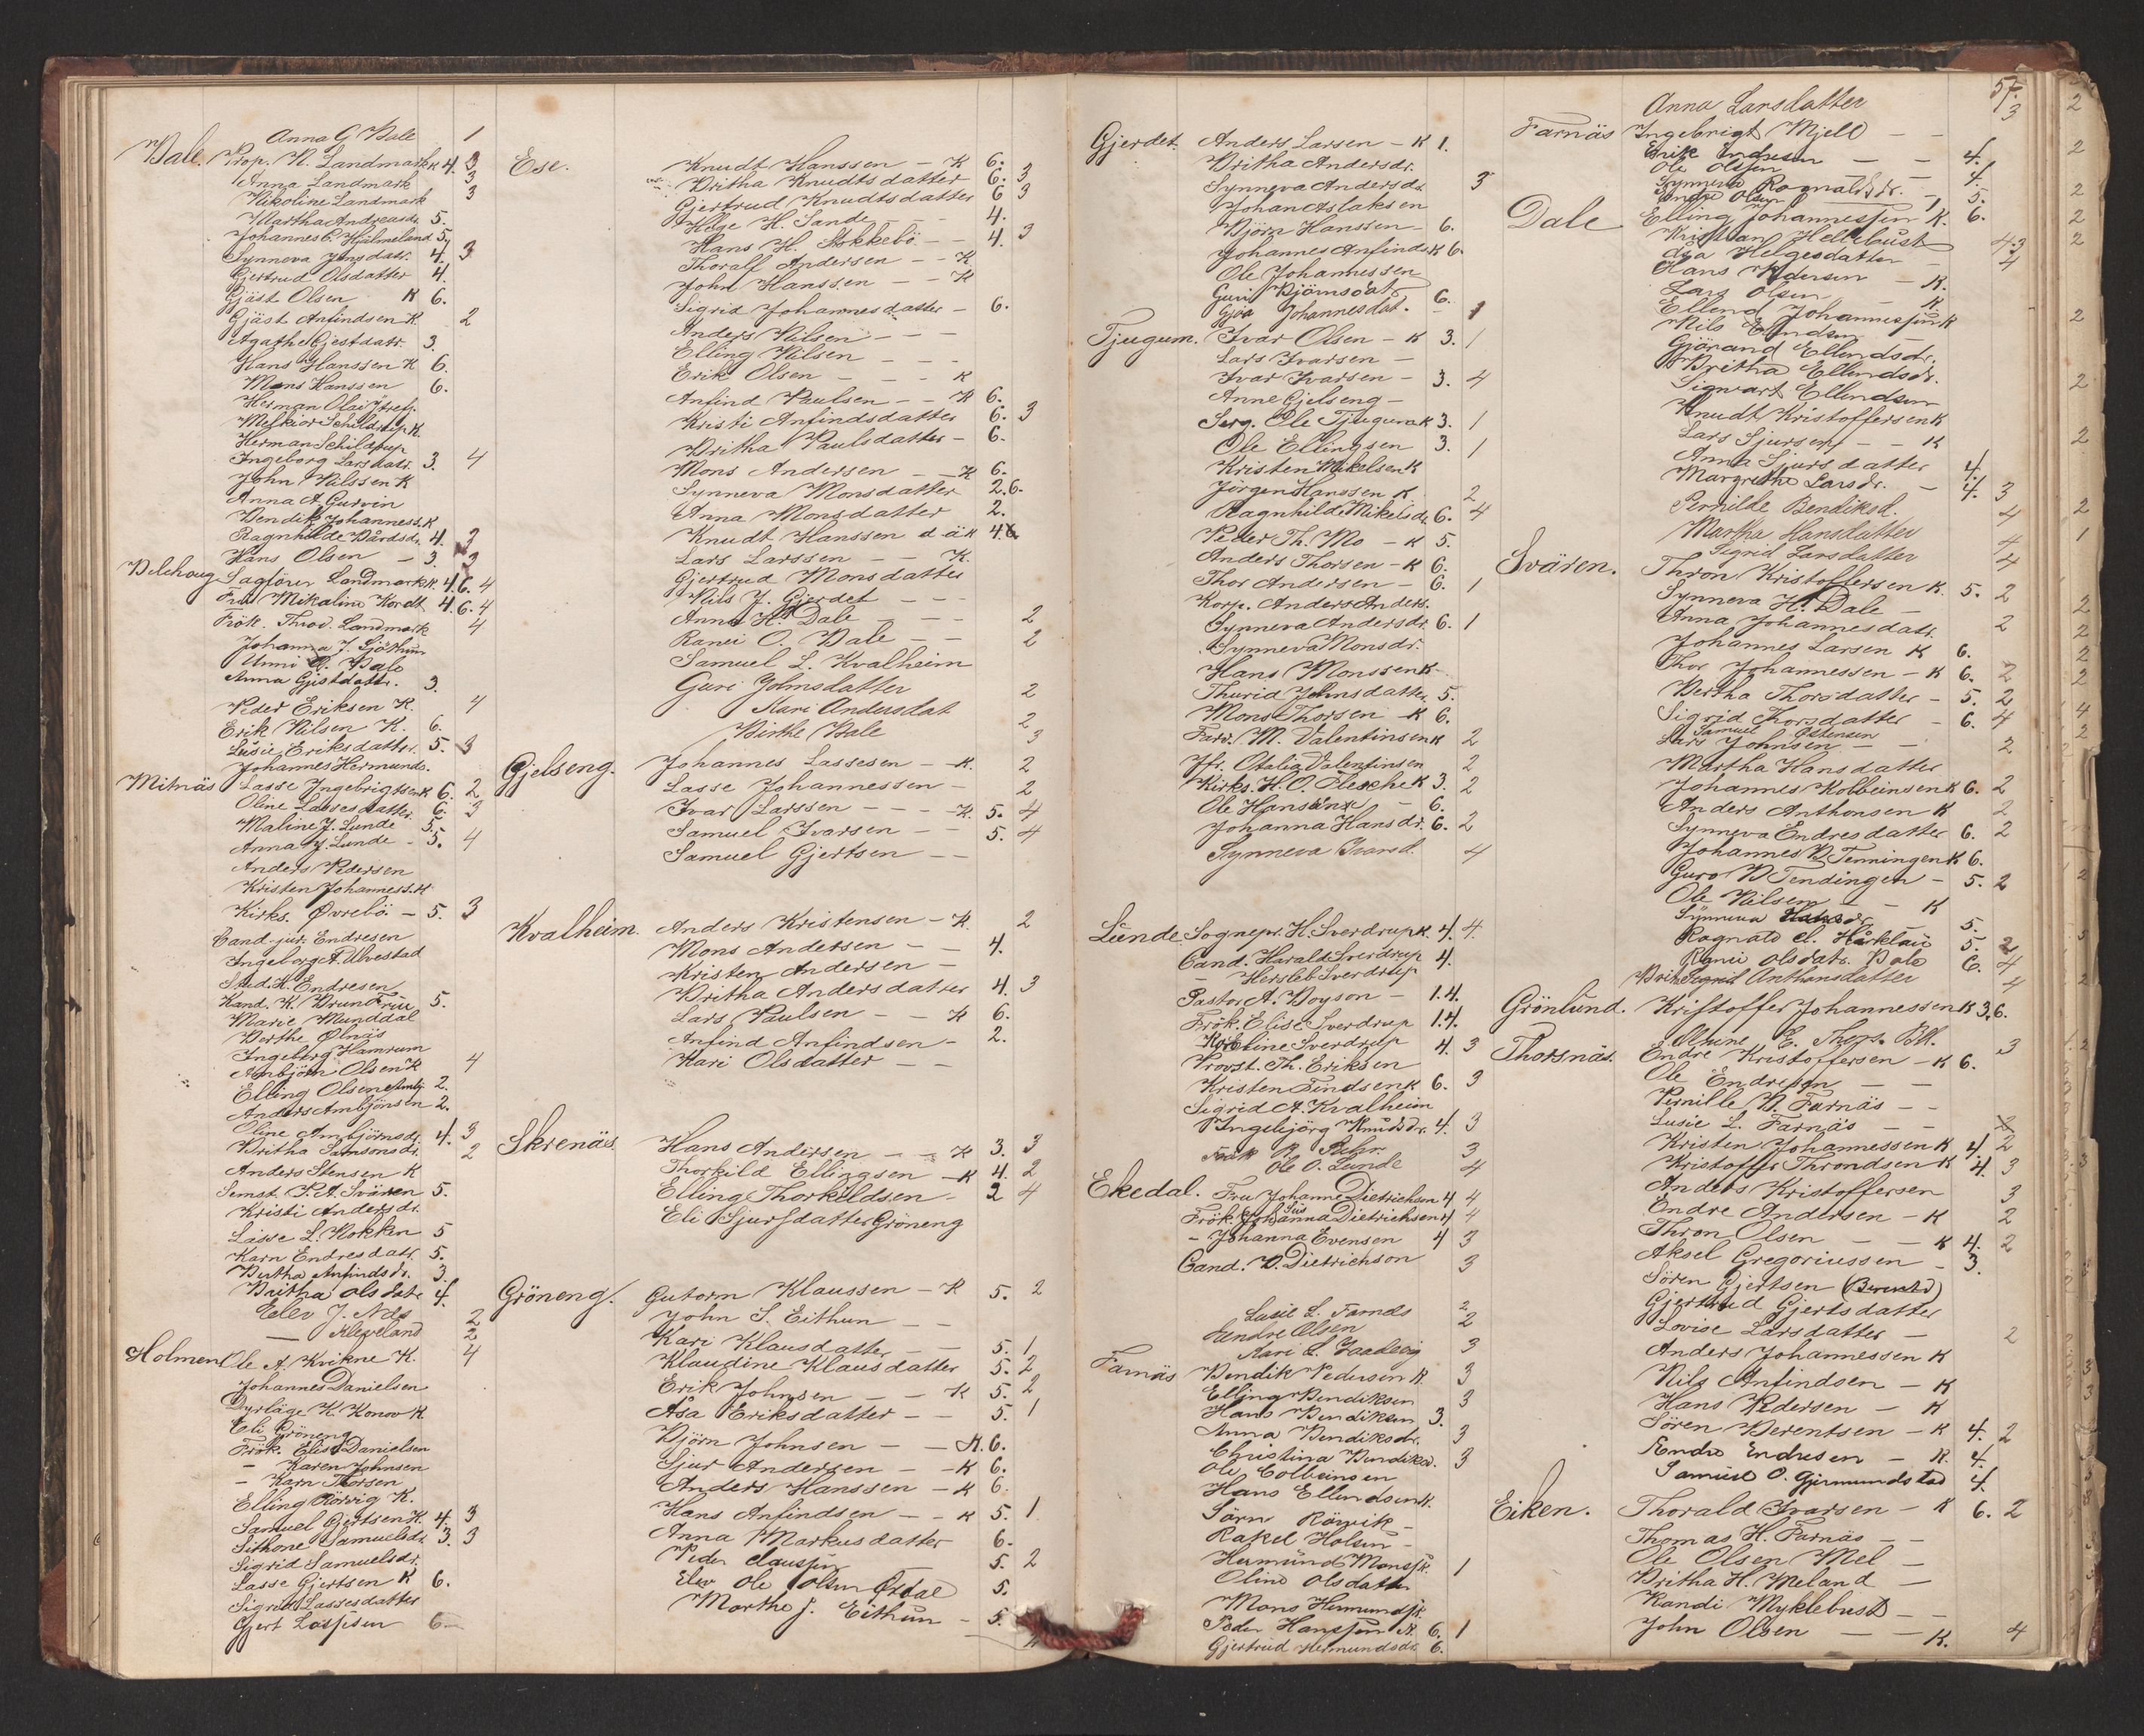 Anna G. Dale 1
Dale. Prop. N. Landmark K 4. 3
Anna Landmark 3
Nikoline Landmark 3
Martha Andreasdr. 5.
Johannes C. Hjälmeland 5.
Synneva Jensdatr. 4. 3
Gjertrud Olsdatter 4.
Gjäst Olsen K 6.
Gjäst Anfindsen K. 2
Agathe Gjestdatr. 3.
Hans Hanssen K 6.
Mons Hanssen 6.
Herman Olai
Melkior Schildrup K.
Herman Schildrup
Ingeborg Larsdatr. 3. 4
John Nilssen K
Anna A. Gurvin
Bendik Johanness. K
Ragnhilde Bårdsdr. 4. 3
Hans Olsen – 3. 3
Sagförer Landmark K 4. 6. 4
Fru Mikaline Kordt 4. 6. 4
Frök. Throd. Landmark 4
Johanna J.
Unni O. Dale
Anna Gjestdatr. 3.
Peder Eriksen K. 4
Erik Nilsen K. 6.
Lusie Eriksdatter. 5. 3
Johannes Hermunds.
Mitnäs Lasse Ingebrigtsen K 6. 2
Oline Lassesdatter 6. 3
Maline J. Lunde 5.
Anna J. Lunde – 5. 4
Anders Pedersen
Kristen Johanness. K
Kirks. Øvrebö – 5. 3
Cand. jur. Endresen
Ingeborg A. Ulvestad
Stud. H. Endresen
Kand. K. Brun Fru 5.
Marie Munddal
Berthe Ölnäs
Ingeborg Hamrum
Ambjörn Olsen K 4
Elling Olsen Ambj. 2.
Anders Ambjönsen 2.
Oline Ambjörnsdr. 4. 3
Britha Samsonsdr. 2
Anders Stensen K
Semst. P. A. Svären 5.
Kristi Andersdr.
Lasse L. Hokken 5
Karn Endresdatr. 5.
Bertha Anfindsdr. 3.
Britha Olsdatr 4.
Elev J. Næs 2
— Kleppeland 2
Holmen Ole A. Kvikne K. 4
Johannes Danielsen
Dyrläge K. Konow K
Eli Gröneng
Frök. Elise Danielsen
– Karen Johnsen
– Karn Thorsen
Elling Rörvig K.
Samuel Gjertsen K. 4. 3
Sithone Samuelsdr. 3. 3
Sigrid Samuelsdr.
Lasse Gjertsen K 6.
Sigrid Lassesdatter
Gjert Lassesen 6
Ese. Knudt Hanssen – K 6.
Britha Knudtsdatter 6. 3
Gjertrud Knudtsdatter 6 3
Helge H. Sande – – 4.
Hans H. Stokkebö – – 4. 3
Thoralf Andersen – – K
John Hanssen – – K
Sigrid Johannesdatter – 6.
Anders Nilsen – –
Elling Nilsen – – –
Erik Olsen – – – K
Anfind Paulsen – – K 6.
Kristi Anfindsdatter 6. 3
Britha Paulsdatter – 6.
Mons Andersen – – K 6.
Synneva Monsdatter 2. 6.
Anna Monsdatter 2.
Knudt Hanssen d ä K 4. 6
Lars Larssen – – K.
Gjertrud Monsdatter
Nils J. Gjerdet – – –
Anna H. Dale – – – 2
Ranei O. Dale – – 2
Samuel L. Kvalheim
Guri Johnsdatter 2
Kari Andersdat 2
Birthe Dale 3
Gjelseng. Johannes Lassesen – K. 2
Lasse Johannessen – 2
Ivar Larssen – – – K. 5. 4
Samuel Ivarsen – – 5. 4
Samuel Gjertsen – –
Kvalheim. Anders Kristensen – K. 2
Mons Andersen – – 4.
Kristen Andersen –
Britha Andersdatter 4. 3
Lars Paulsen – – K 6.
Anfind Anfindsen – 2.
Kari Olsdatter – –
Skrenäs. Hans Andersen – – K 3. 3
Thorkild Ellingsen – K 4. 2
Elling Thorkildsen – 2 4
Eli Sjursdatter Gröneng
Gröneng. Gutorm Klaussen – K 5. 2
John S. Eithun – –
Kari Klausdatter – – 5. 1
Klaudine Klausdatter 5. 2
Erik Johnsen – – K 5. 2
Asa Eriksdatter – – 5. 1
Björn Johnsen – – K. 6.
Sjur Andersen – – K 6.
Anders Hanssen – K 6.
Hans Anfindsen – – K 5. 1
Anna Markusdatter 6.
Peder Claussen – 5. 2
Elev Ole Olsen Ørdal 5.
Marthe J. Eithun – 5.
Gjerdet. Anders Larsen – K 1.
Britha Andersdr.
Synneva Andersdr. 3
Johan Aslaksen
Björn Hanssen – 6.
Johannes Anfinds K 6.
Ole Johannessen
Guri Björnsdatr 6.
Gjøa Johannesdat. – 1
Tjugum. Ivar Olsen – K 3. 1
Lars Ivarsen –
Ivar Ivarsen – 3. 4
Anne Gjelseng –
Serg. Ole Tjugum K 3. 1
Ole Ellingsen 3. 1
Kristen Mikelsen K
Jörgen Hanssen K 2
Ragnhilde Mikelsdr. 6. 4
Peder Th. Mo – K 5.
Anders Thorsen – K 6.
Thor Andersen – 6. 1
Korp. Anders Anders.
Synneva Andersdr. 6. 1
Synneva Monsdr.
Hans Monssen K
Thurid Johnsdatter 5.
Mons Thorsen – K 6.
Farv. M. Valentinsen K 2
Jfr. Otalia Valentinsen 2
Kirks. H. O. Flesche K 3. 2
Ole Hans – 6.
Johanna Hansdr. 6. 2
Synneva Ivarsd. 4
Lunde. Sognepr. H. Sverdrup K. 4. 4.
Cand. Harald Sverdrup 4.
Hersleb Sverdrup
Pastor A. Boyson – 1. 4.
Frök. Elise Sverdrup 1. 4.
Karoline Sverdrup 4. 3
Provst. Th. Eriksen
Kristen Findsen K 6. 3
Sigrid A. Kvalheim
Ingebjörg Knudsdr. 4. 3
Frøk R. Pehr. 3
Ole O. Lunde 4
Ekedal. Fru Johanne Dietrichson 4 4
Frök. Johanna Dietrichsen 4 4
– Johanna Evensen 4 3
Cand. D. Dietrichson 3
Lusie L. Farnæs 2
Sendre Olsen 2
Kari L. 3
Farnäs Bendik Pedersen K. 3
Elling Bendiksen 3
Hans Bendiksen 3.
Anna Bendiksdr. 3
Christina Bendiksd. 3
Ole Colbeinsen
Hans Ellendsen K.
Sörn Rörvik –
Rakel Holsen –
Hermund Monss. 1
Oline Olsdatter
Mons Hermunds.
Peder Hanssen K. 6. 1
Gjertrud Hermundsdr. 6.
57.
Anna Larsdatter 3
Farnäs Ingebrigt Mjell – –
Erik Endresen – – 4.
Ole Olsen 4.
Synneva Ragnaldsdr. – 5.
Dale Elling Johannessen K. 6.
Kristian Hellebust 4. 3
Asa Helgesdatter – 4
Hans Pedersen – K.
Lars Olsen – K
Ellend Johannessen K
Nils Endsen –
Gjørand Ellendsdr.
Britha Ellendsdr.
Sigvart Ellendsen
Knudt Kristoffersen K
Lars Sjursen – – K
Anna Sjursdatter 4.
Margrethe Larsdr. – 4. 3
Pernilde Bendiksd. 4
Martha Hansdatter 4
Sigrid Larsdatter 4
Svären. Thron Kristoffersen K. 5. 2
Synneva H. Dale –
Anna Johannesdatr. 2
Johannes Larsen K 6.
Thor Johannessen – K 6. 2
Bertha Thorsdatter – 5. 2
Sigrid Thorsdatter – 6. 4
Samuel Østensen
Lars Johnsen – – 2
Martha Hansdatter
Johannes Kolbeinsen K 6. 2
Anders Anthonsen K 2
Synneva Endresdatter 6. 2
Johannes B. Tenningen K 6.
Guro B. Tendingen – 5. 2
Ole Nilsen – – K
Synneva Hansdr. 5.
Ragnald El. Hårklau 5. 2
Ranei Olsdatr. Dale 6. 4
Brithe Anthonsdatter 4
Grönlund. Kristoffer Johannessen K 3. 6.
E. Thors. 3
Thorsnäs. Endre Kristoffersen – K 6.
Ole Endresen – –
Pernille B. Farnäs – –
Lusie L. Farnäs – – 2
Kristen Johannessen K 4. 2
Kristoffer Throndsen K 4. 3
Anders Kristoffersen 3
Endre Andersen – K 2
Thron Olsen – – K 4. 2
Aksel Gregoriussen – 3.
Sören Gjertsen
Gjertrud Gjertsdatter
Lovise Larsdatter – 2
Anders Johannessen K
Nils Anfindsen – K
Hans Pedersen – K
Sören Berentsen – K 4. 2
Endre Endresen – K. 4.
Samuel O. Gjermundstad 4.
Eiken. Thorald Ivarsen – K 6. 2
Thomas H. Farnäs – –
Ole Olsen Mel –
Britha H. Meland –
Randi Myklebust – –
John Olsen – – K. 4